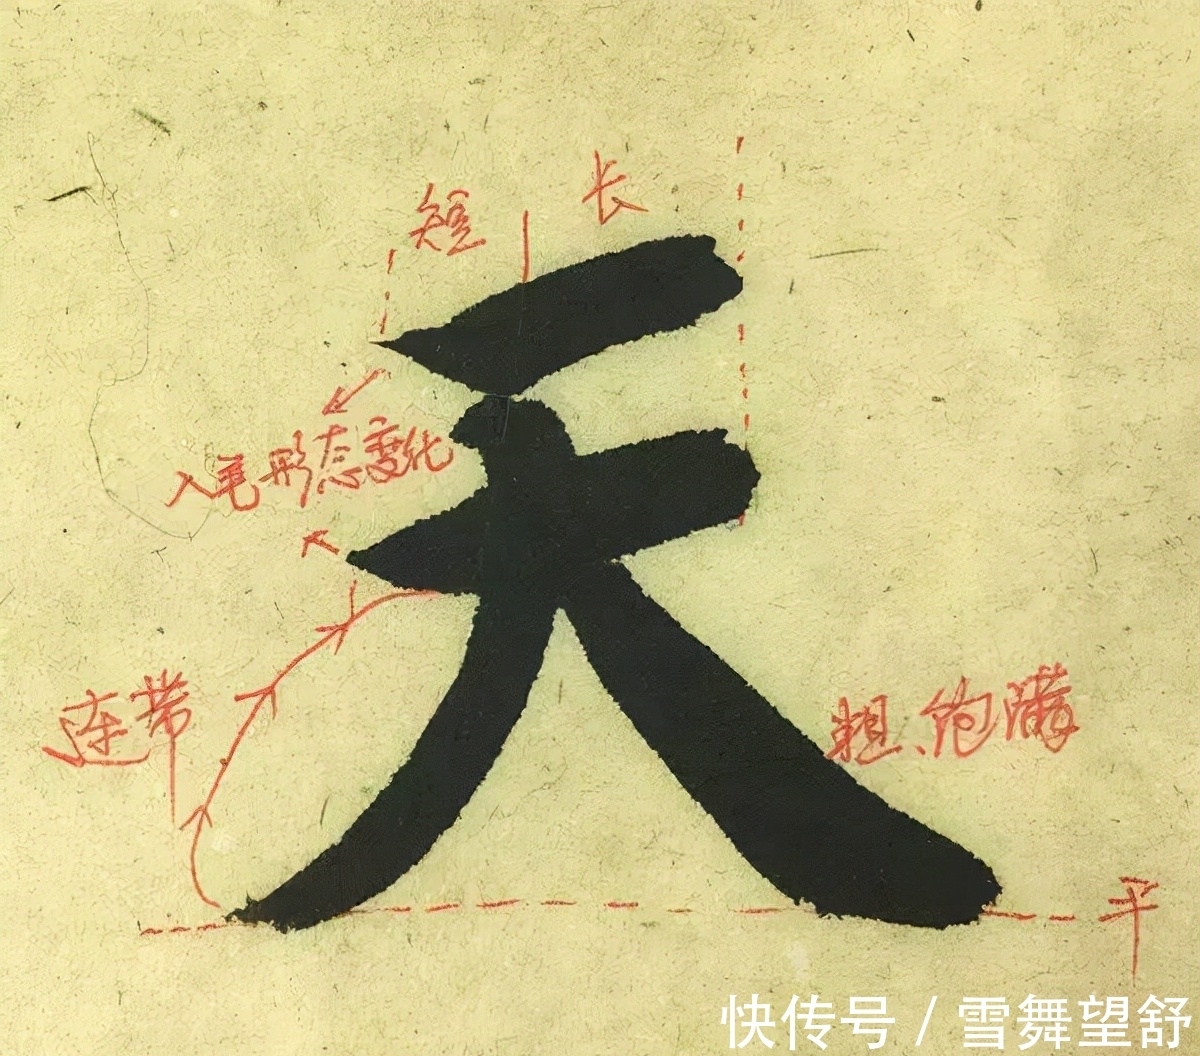 短 长
天
入毛形态变化
连带
粗、饱满
平
快传号 / 雪舞望舒